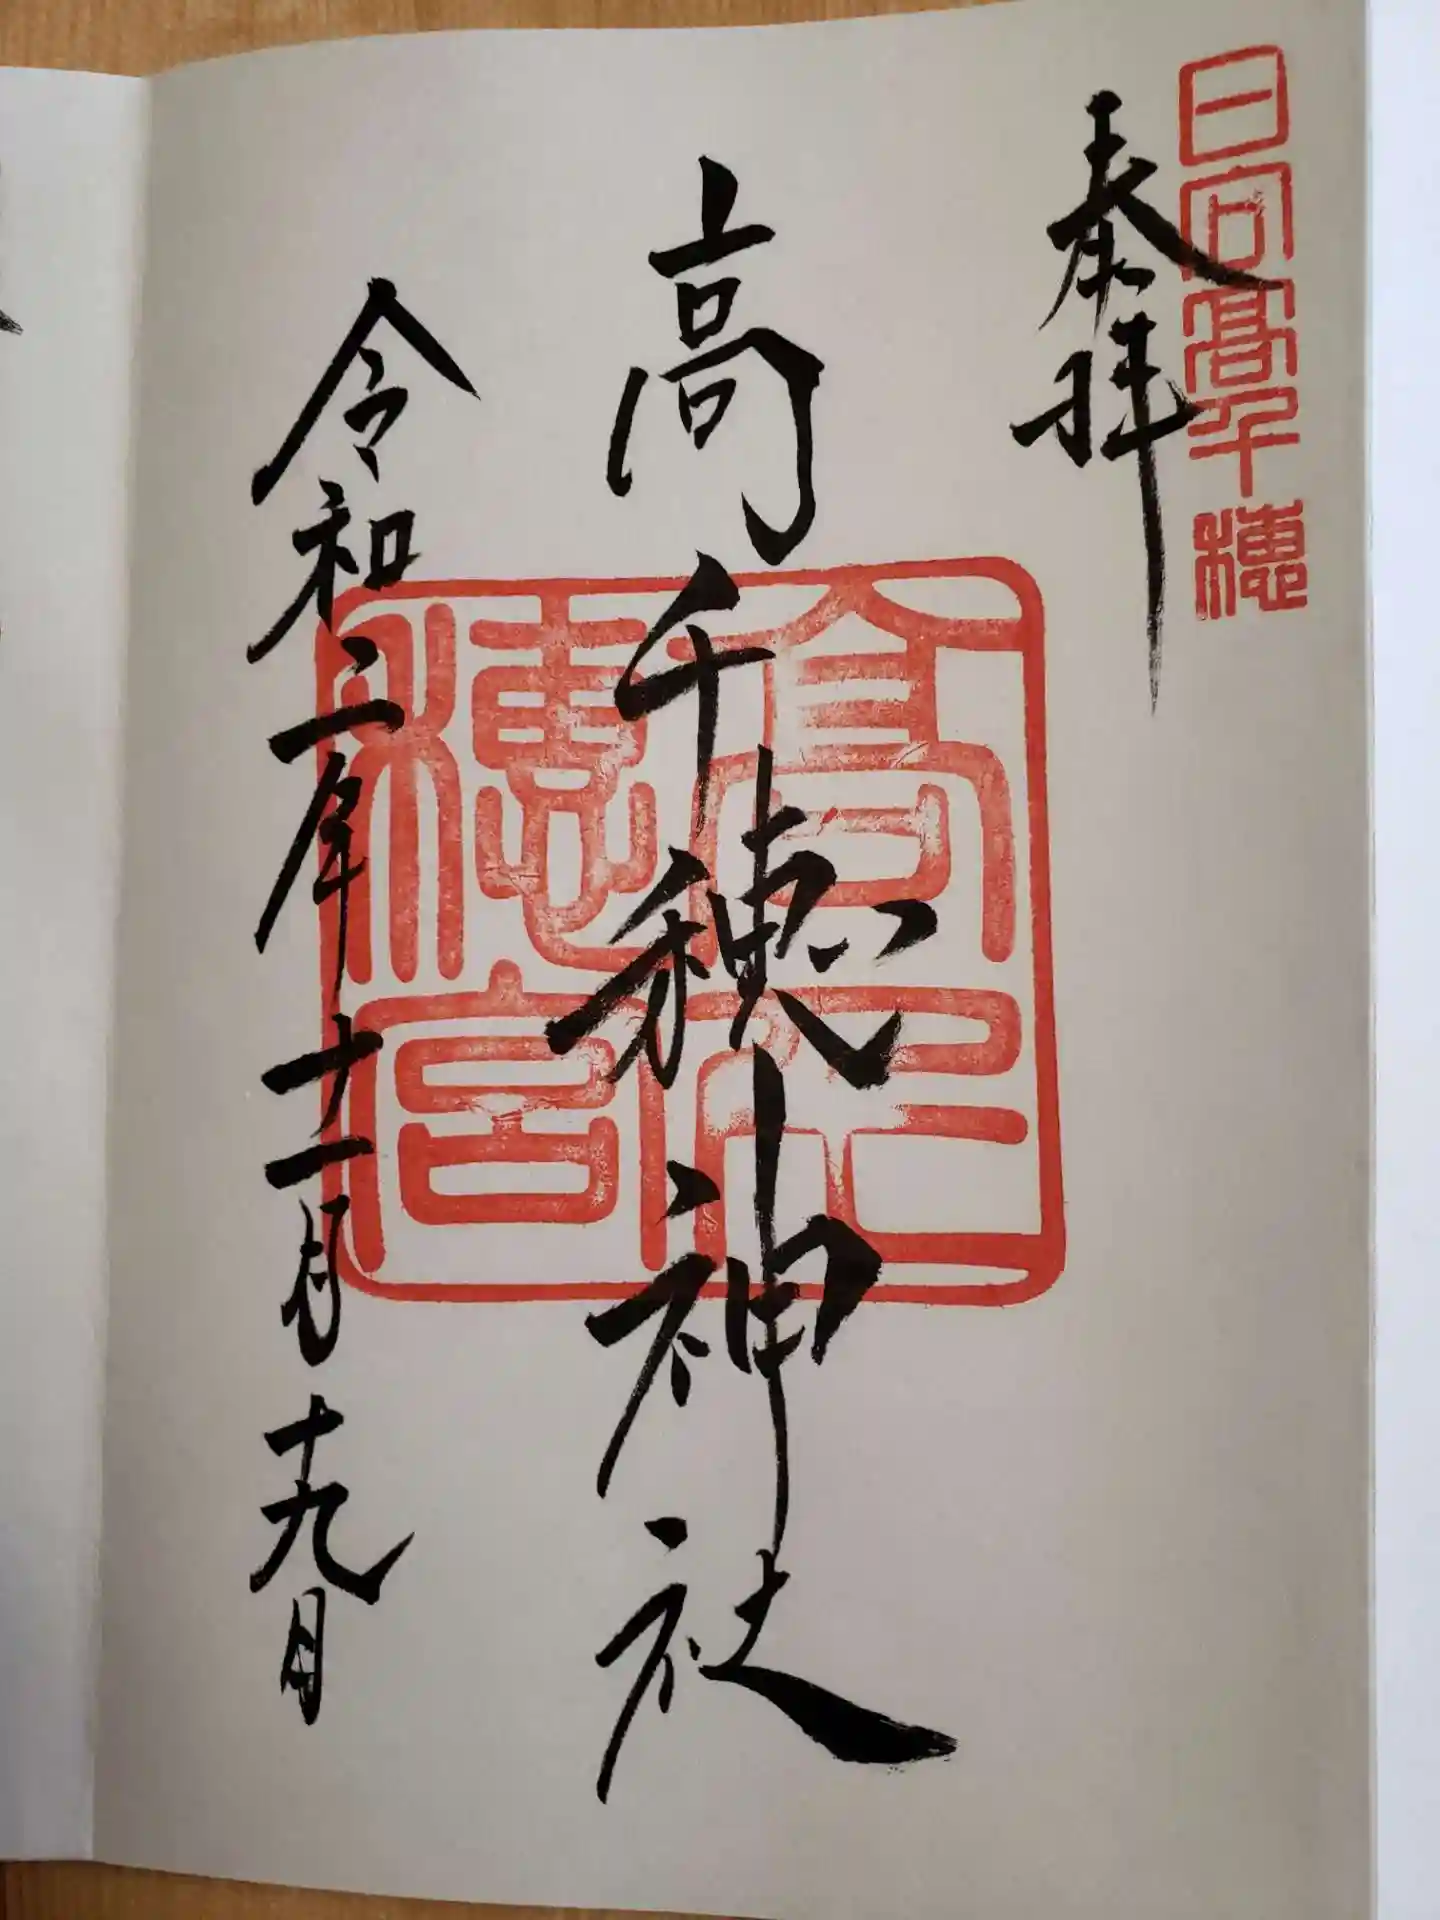 日向高千穂
奉拝
高千穂神社
令和二年十一月十九日